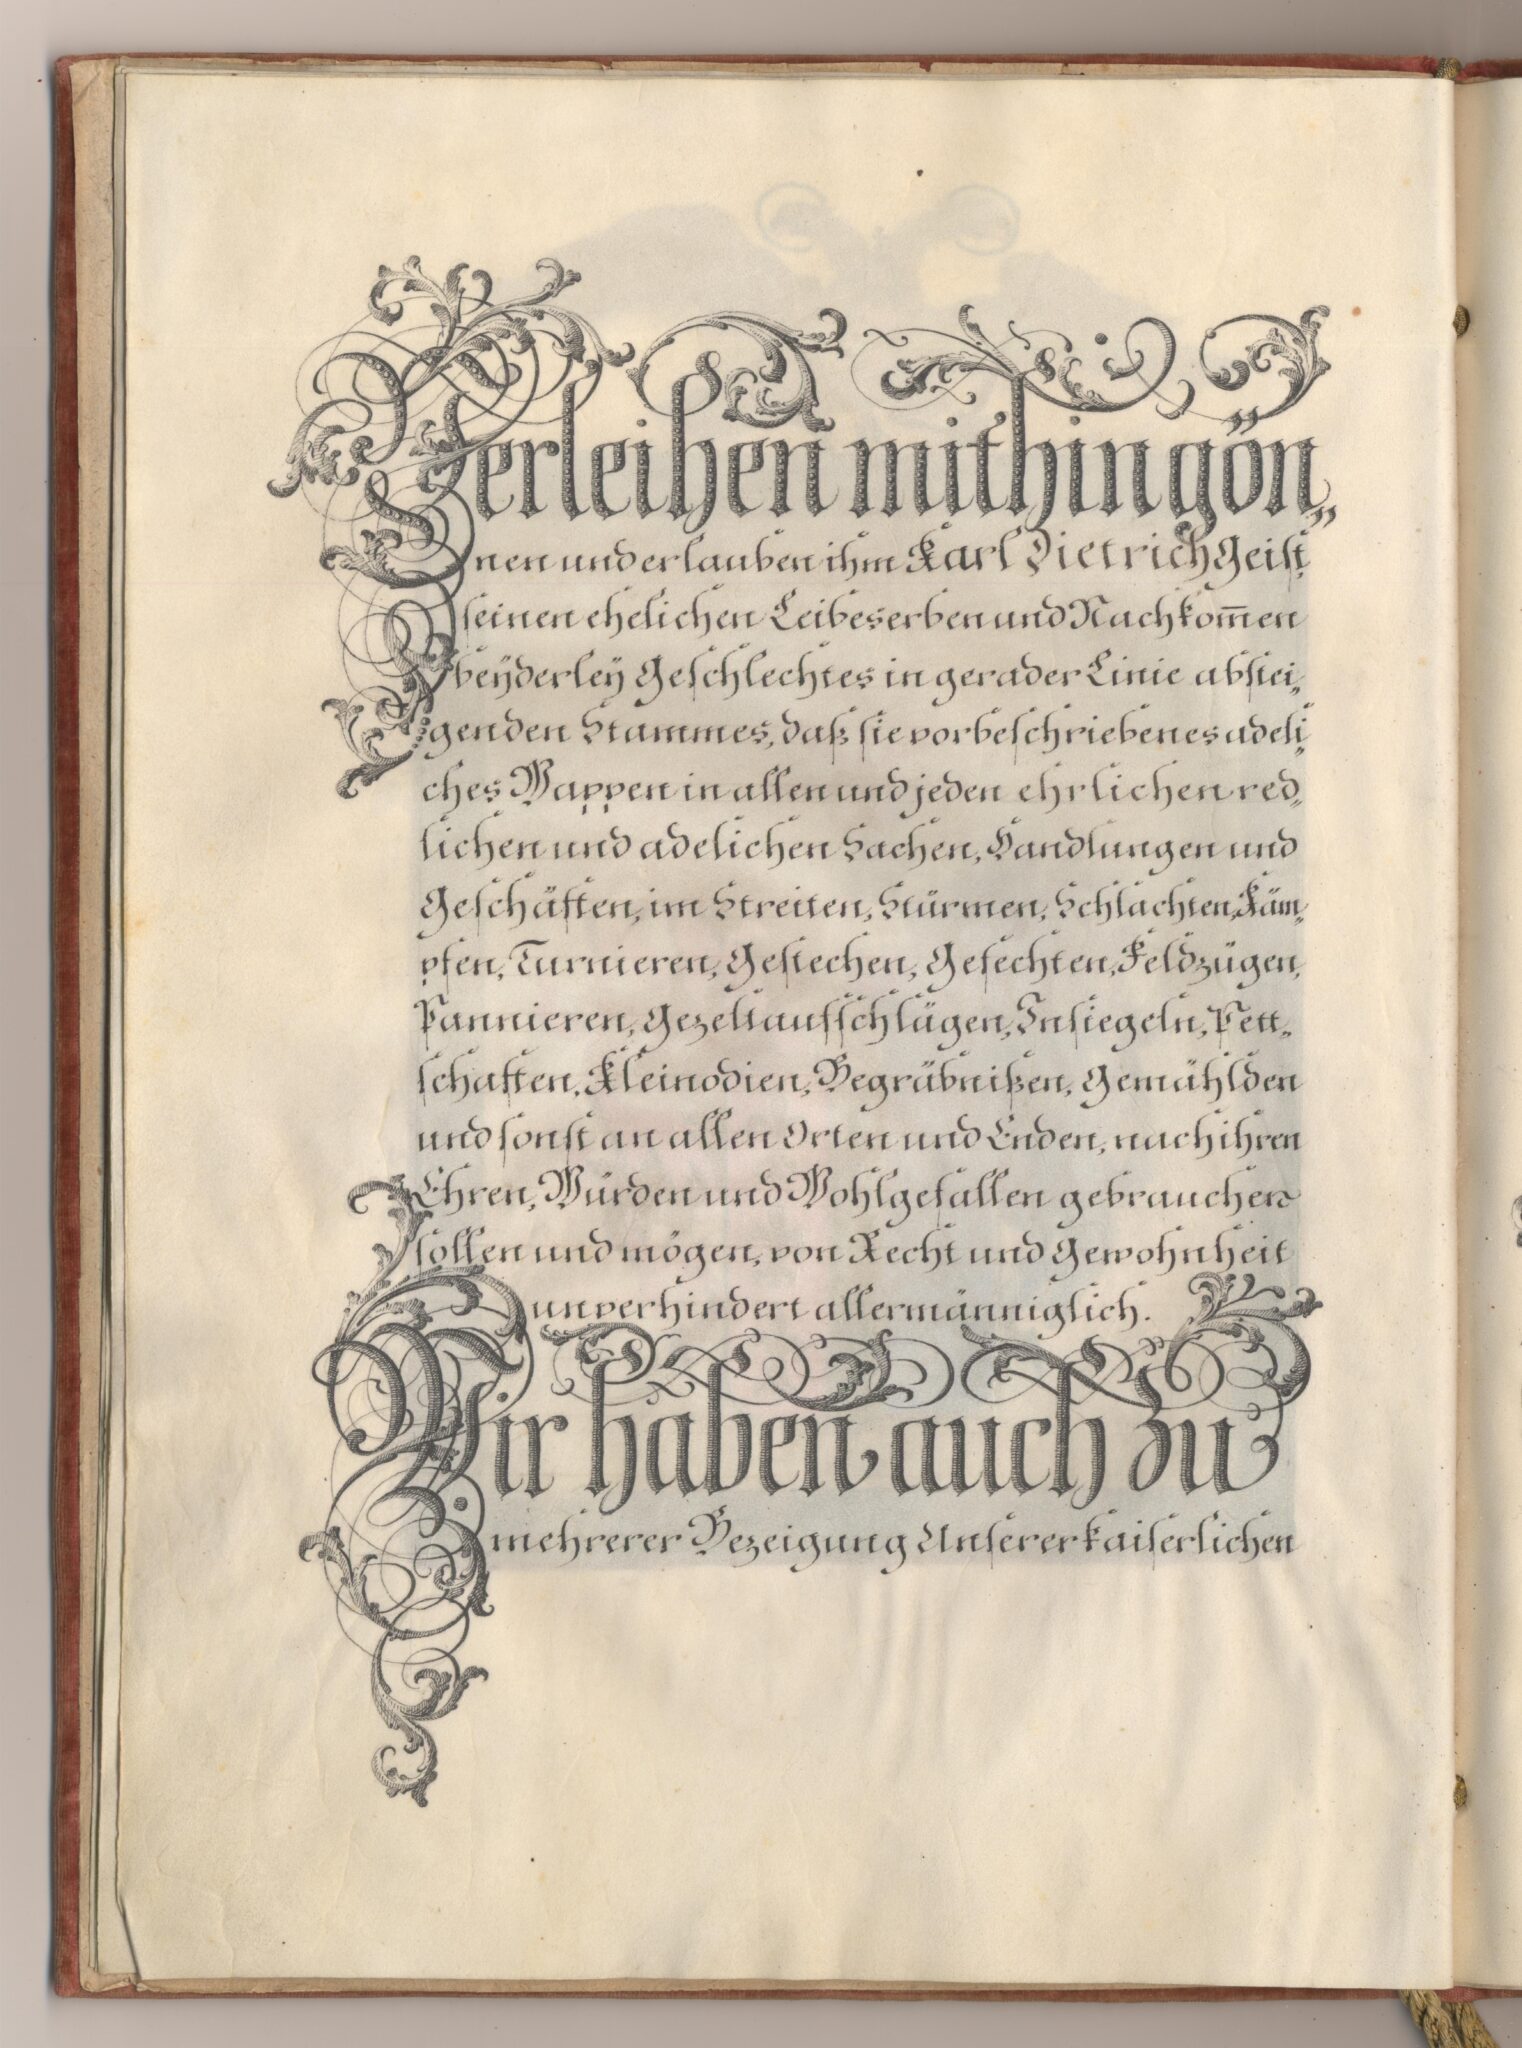 Verleihen mithin gön„
nen und erlauben ihm Karl Dietrich Geist
seinen ehelichen Leibeserben und Nachkom̅en
beÿderleÿ Geschlechtes in gerader Linie abstei„
genden Stammes, daß sie vorbeschriebenes adeli„
ches Wappen in allen und jeden ehrlichen red„
lichen und adelichen Sachen, Handlungen und
Geschäften, im Streiten, Stürmen, Schlachten, Käm„
pfen, Turnieren, Gestechen, Gefechten, Feldzügen,
Pannieren, Gezeltaufschlägen, Insiegeln, Pett„
schaften, Kleinodien, Begräbnißen, Gemählden
und sonst an allen Orten und Enden, nach ihren
Ehren, Würden und Wohlgefallen gebrauchen
sollen und mögen, von Recht und Gewohnheit
unverhindert allermänniglich.
Wir haben auch zu
mehrerer Bezeigung Unserer kaiserlichen